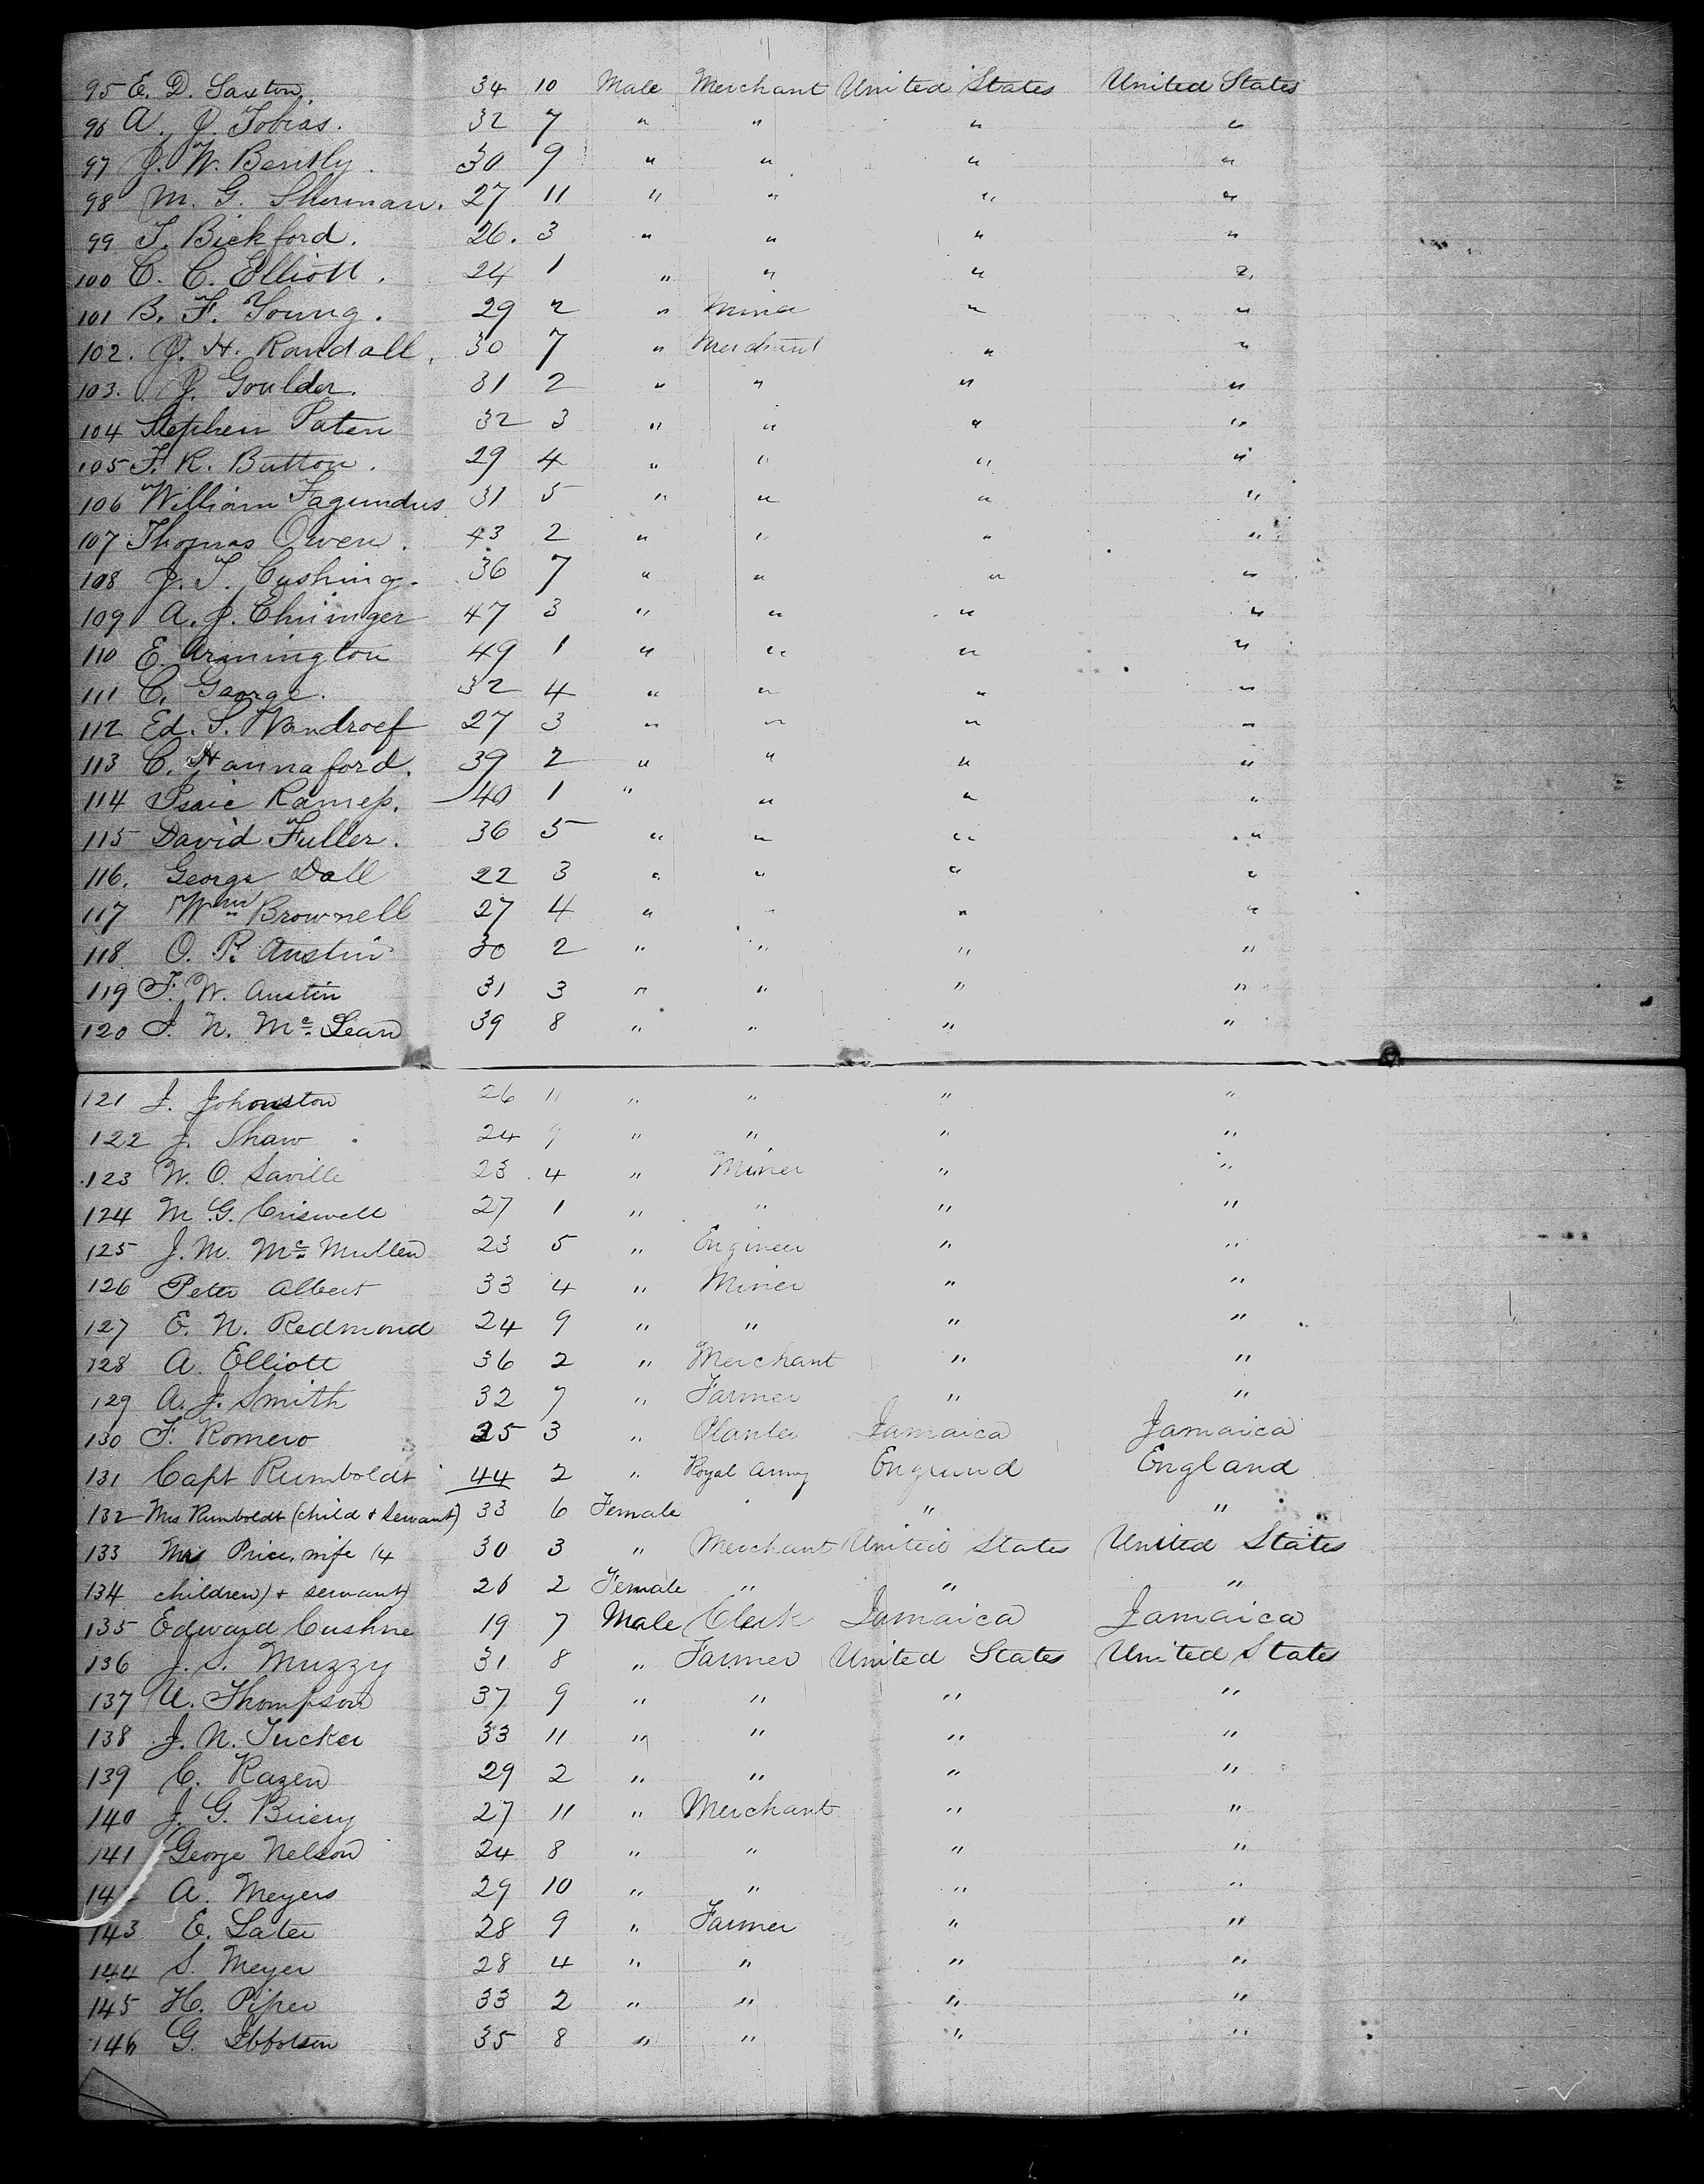 95 E. D. Saxton. 34 10 Male Merchant United States United States
96 A. J. Tobias. 32 7 " " " "
97 J. W. Bently. 30 9 " " " "
98 M. G. Sherman. 27 11 " " " "
99 T. Bickford. 26. 3 " " " "
100 C. C. Elliott. 24 1 " " " "
101 B. F. Young. 29 2 " Miner " "
102. J. H. Randall. 30 7 " Merchant " "
103. J. Goulder. 31 2 " " " "
104 Stephen Paten 32 3 " " " "
105 F. R. Button. 29 4 " " " "
106 William Fagundus 31 5 " " " "
107 Thomas Owen. 43 2 " " " "
108 J. T. Cushing. 36 7 " " " "
109 A. J. Ehninger 47 3 " " " "
110 E. Armington 49 1 " " " "
111 C. George. 32 4 " " " "
112 Ed. S. Vandroef 27 3 " " " "
113 C. Hannaford. 39 2 " " " "
114 Isaic 40 1 " " " "
115 David Fuller. 36 5 " " " "
116. George Dall 22 3 " " " "
117 Wm Brownell 27 4 " " " "
118 O. P. Austin 30 2 " " " "
119 F. W. Austin 31 3 " " " "
120 J. N. Mc. Lean 39 8 " " " "
121 J. Johonston 26 11 " " " "
122 J. Shaw. 24 9 " " " "
123 W. O. Saville 23 4 " Miner " "
124 M. G. Criswell 27 1 " " " "
125 J. M. Mc. Mullen 23 5 " Engineer " "
126 Peter Albert 33 4 " Miner " "
127 E. N. Redmond 24 9 " " " "
128 A. Elliott 36 2 " Merchant " "
129 A. J. Smith 32 7 " Farmer " "
130 F. Romero 25 3 " Planter Jamaica Jamaica
131 Capt Rumboldt 44 2 " Royal Army England England
132 Mrs Rumboldt (child & Servant) 33 6 Female " "
133 Price, wife (4 30 3 " Merchant United States United States
134 children) & servant) 26 2 Female " " "
135 Edward Cushne 19 7 Male Clerk Jamaica Jamaica
136 J. S. Muzzy 31 8 " Farmer United States United States
137 U. Thompson 37 9 " " " "
138 J. N. Tucker 33 11 " " " "
139 C. Kazen 29 2 " " " "
140 J. G. Briery 27 11 " Merchant " "
141 George Nelson 24 8 " " " "
142 A. Meyers 29 10 " " " "
143 E. Later 28 9 " Farmer " "
144 S. Meyer 28 4 " " " "
145 H. Piper 33 2 " " " "
146 G. Ibbotson 35 8 " " " "